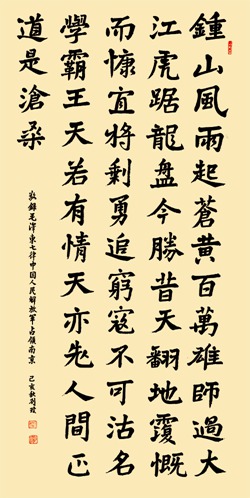 鍾山風雨起蒼黃百萬雄師過大
江虎踞龍盤今勝昔天翻地覆慨
而慷宜將剩勇追窮寇不可沽名
學霸王天若有情天亦老人間正
道是滄桑
敬錄毛澤東七律中国人民解放軍占領南京 己亥秋劉